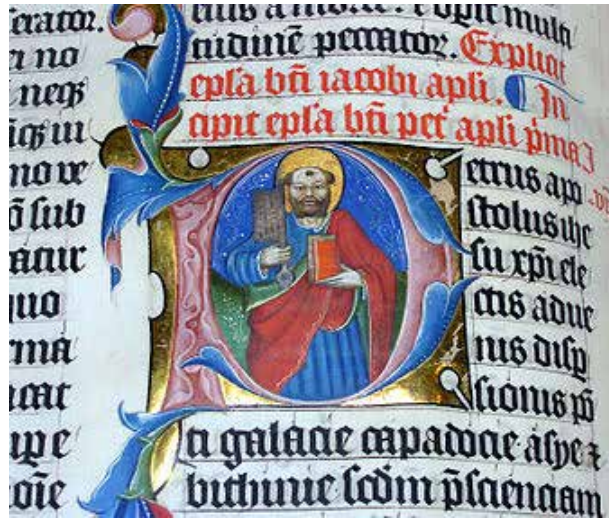 erator.
ei no
neqꝫ
iqꝫ in
mo ve
õ sub
atur
quo
rma
icat
ipe
oīe
eius a morte. ⁊ opit multi
tudinē peccatoꝝ. Explicit
epl̄a bt̄i iacobi apl̄i. In
cipit epl̄a bt̄i pet͛ apl̄i p̄ma I
etrus apo
stolus ihe
su xp̄i ele
ctis adue
nis disp
sionis pō
ti galacie capadocie asye ⁊
bithinie scd̄m p̄scienciam